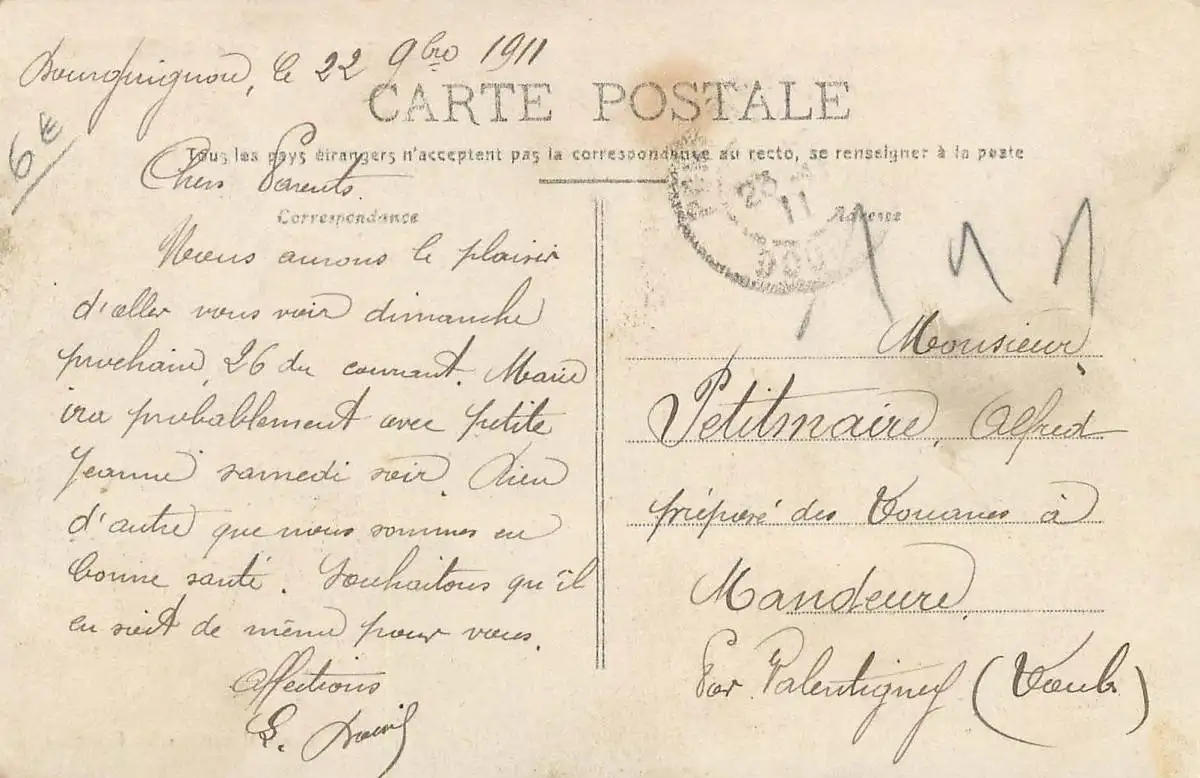 Bourguignon, le 22 9bre 1911
6€
CARTE POSTALE
Tous les pays étrangers n'acceptent pas la correspondance au recto, se renseigner à la poste
Chers Parents
Correspondance
Nous aurons le plaisir
d'aller vous voir dimanche
prochain, 26 du courant. Marie
ira probablement avec petite
Jeanne samedi soir. Rien
d'autre que nous sommes en
bonne santé. Souhaitons qu'il
en soit de même pour vous.
Affections
Adresse
23
11
DOUBS
Monsieur
Petitmaire, Alfred
préposé des Douanes à
Mandeure
Par Valentigney (Doubs)